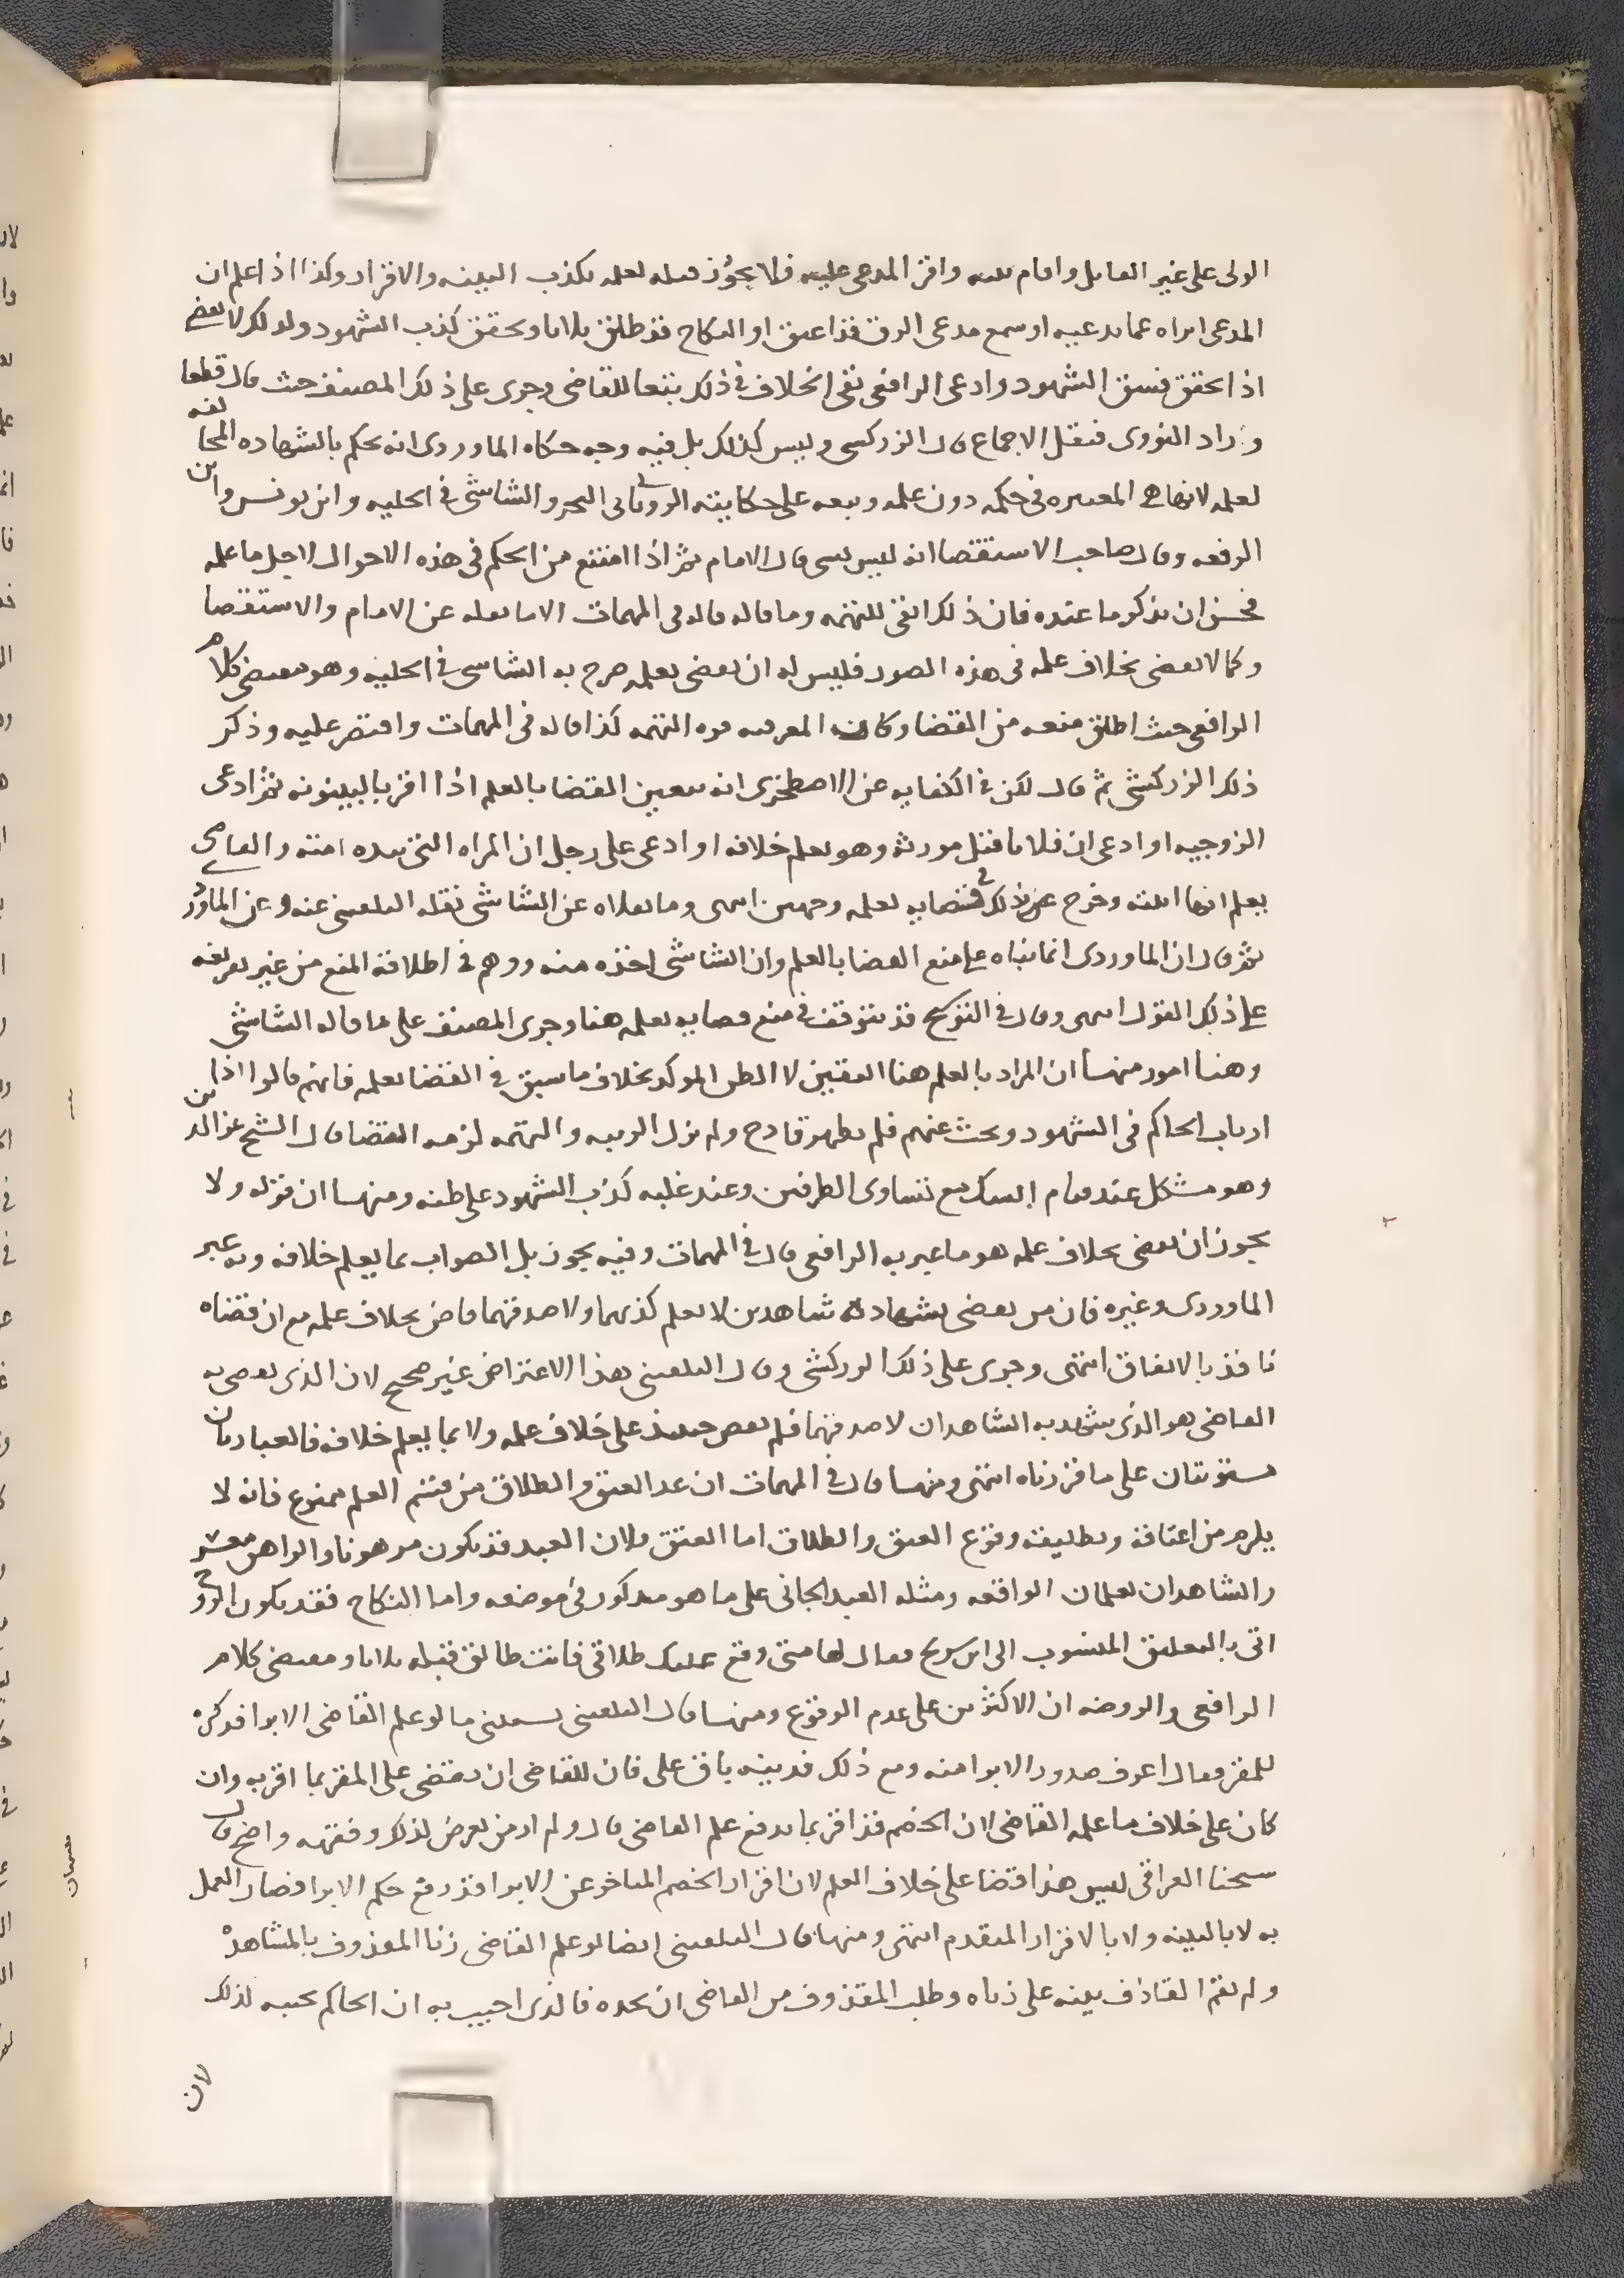 الولى على غير القاتل واقام بينه واقر المدعى عليه فلا يجوز قتله لعلمه بكذب البينه والاقرار وكذا اذا علم ان
المدعى ابراه عما يدعيه او سمع مدعى الرق قد اعتق او النكاح قد طلق ثلاثا وتحقق كذب الشهود ولذلك لا يقضى
اذا تحقق فسق الشهود وادعى الرافعى نفى الخلاف فى ذلك تبعا للقاضى وجرى على ذلك المصنف حيث قال قطعا
وزاد النووى فنقل الاجماع قال الزركشى وليس كذلك بل فيه وجه حكاه الماوردى انه يحكم بالشهاده المخالفه
لعلمه لانها هى المعتبره فى حكمه دون علمه وتبعه على حكايته الرويانى فى البحر والشاشى فى الحليه وابن يونس وابن
الرفعه وقال صاحب الاستقصا انه ليس بشى قال الامام ثم اذا امتنع من الحكم فى هذه الاحوال لاجل ما علمه
فحسن ان يذكر ما عنده فان ذلك انفى للتهمه وما قاله قاله فى المهمات الا ما نقله عن الامام والاستقصا
وكما لا يقضى بخلاف علمه فى هذه الصور فليس له ان يقضى بعلمه صرح به الشاشى فى الحليه وهو مقتضى كلام
الرافعى حيث اطلق منعه من القضا وكان المعرفه قوه التهمه كذا قاله فى المهمات واقتصر عليه وذكر
ذلك الزركشى ثم قال لكن فى الكفايه عن الاصطخرى انه يتعين القضا بالعلم اذا اقر بالبينونه ثم ادعى
الزوجيه او ادعى ان فلانا قتل مورثه وهو يعلم خلافه او ادعى على رجل ان المراه التى بيده امته والقاضى
يعلم انها ابنته وخرج عن ذلك فى قضايه بعلمه وجهين انتهى وما نقلاه عن الشاشى نقله البلقينى عنه وعن الماوردى
ثم قال ان الماوردى انما بناه على منع القضا بالعلم وان الشاشى اخذه منه ووهم فى اطلاقه المنع من غير تفريعه
على ذلك القول انتهى وقال فى التوشيح قد يتوقف فى منع قضايه بعلمه هنا وجرى المصنف على ما قاله الشاشى
وهنا امور منها ان المراد بالعلم هنا اليقين لا الظن الموكد بخلاف ما سبق فى القضا بعلمه فانهم قالوا اذا
ارتاب الحاكم فى الشهود وبحث عنهم فلم يظهر قادح ولم تزل الريبه والتهمه لزمه القضا قال الشيخ عز الدين
وهو مشكل عند قيام الشك مع تساوى الطرفين وعند غلبه كذب الشهود على ظنه ومنها ان قوله ولا
يجوز ان يقضى بخلاف علمه هو ما عبر به الرافعى قال فى المهمات وفيه تجوز بل الصواب بما يعلم خلافه وبه عبر
الماوردى وغيره فان من يقضى بشهادة شاهدين لا يعلم كذبهما ولا صدقهما قاض بخلاف علمه مع ان قضاه
نافذ بالاتفاق انتهى وجرى على ذلك الزركشى وقال البلقينى هذا الاعتراض غير صحيح لان الذى يقضى به
القاضى هو الذى يشهد به الشاهدان لا صدقهما فلم يقض حينئذ على خلاف علمه ولا بما يعلم خلافه فالعبارتان
مستويتان على ما قررناه انتهى ومنها قال فى المهمات ان عد العتق والطلاق من قسم العلم ممنوع فانه لا
يلزم من اعتاقه وتطليقه وقوع العتق والطلاق اما العتق فلان العبد قد يكون مرهونا والراهن معسر
والشاهدان يعلمان الواقعه ومثله العبد الجانى على ما هو مذكور فى موضعه واما النكاح فقد يكون الزوج
اتى بالتعليق المنسوب الى ابن سريج فقال لها متى وقع عليك طلاقى فانت طالق قبله ثلاثا ومقتضى كلام
الرافعى والروضه ان الاكثرين على عدم الوقوع ومنها قال البلقينى يستثنى ما لو علم القاضى الابرا فذكره
للمقر فقال اعرف صدور الابرا منه ومع ذلك فدينه باق على فان للقاضى ان يقضى على المقر بما اقر به وان
كان على خلاف ما علمه القاضى لان الخصم قد اقر بما يدفع علم القاضى قال ولم ار من تعرض لذلك وفقهه واضح قال
شيخنا العراقى ليس هذا قضا على خلاف العلم لان اقرار الخصم المتاخر عن الابرا قد رفع حكم الابرا فصار العمل
به لا بالبينه ولا بالاقرار المتقدم انتهى ومنها قال البلقينى ايضا لو علم القاضى زنا المقذوف بالمشاهدة
ولم يقم القاذف بينه على زناه وطلب المقذوف من القاضى ان يحده فالذى اجيب به ان الحاكم يجيبه لذلك
لان